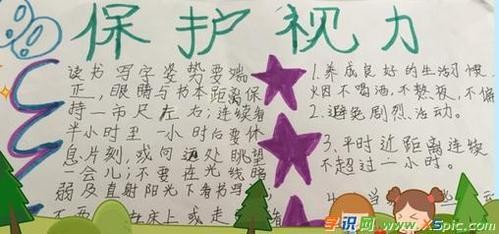 保护视力
读书写字姿势要端
正,眼睛与书本距离保
持一市尺左右;连续看
半小时至一小时后要休
息片刻,或向远处眺望
一会儿;不要在光线暗
弱及直射阳光下看书
不要在床上或走
1.养成良好的生活习惯,
烟不喝酒,不熬夜,不偏
2.避免剧烈活动。
3.平时近距离连续
不超过一小时。
4.当
学识网
www.XSpic.com